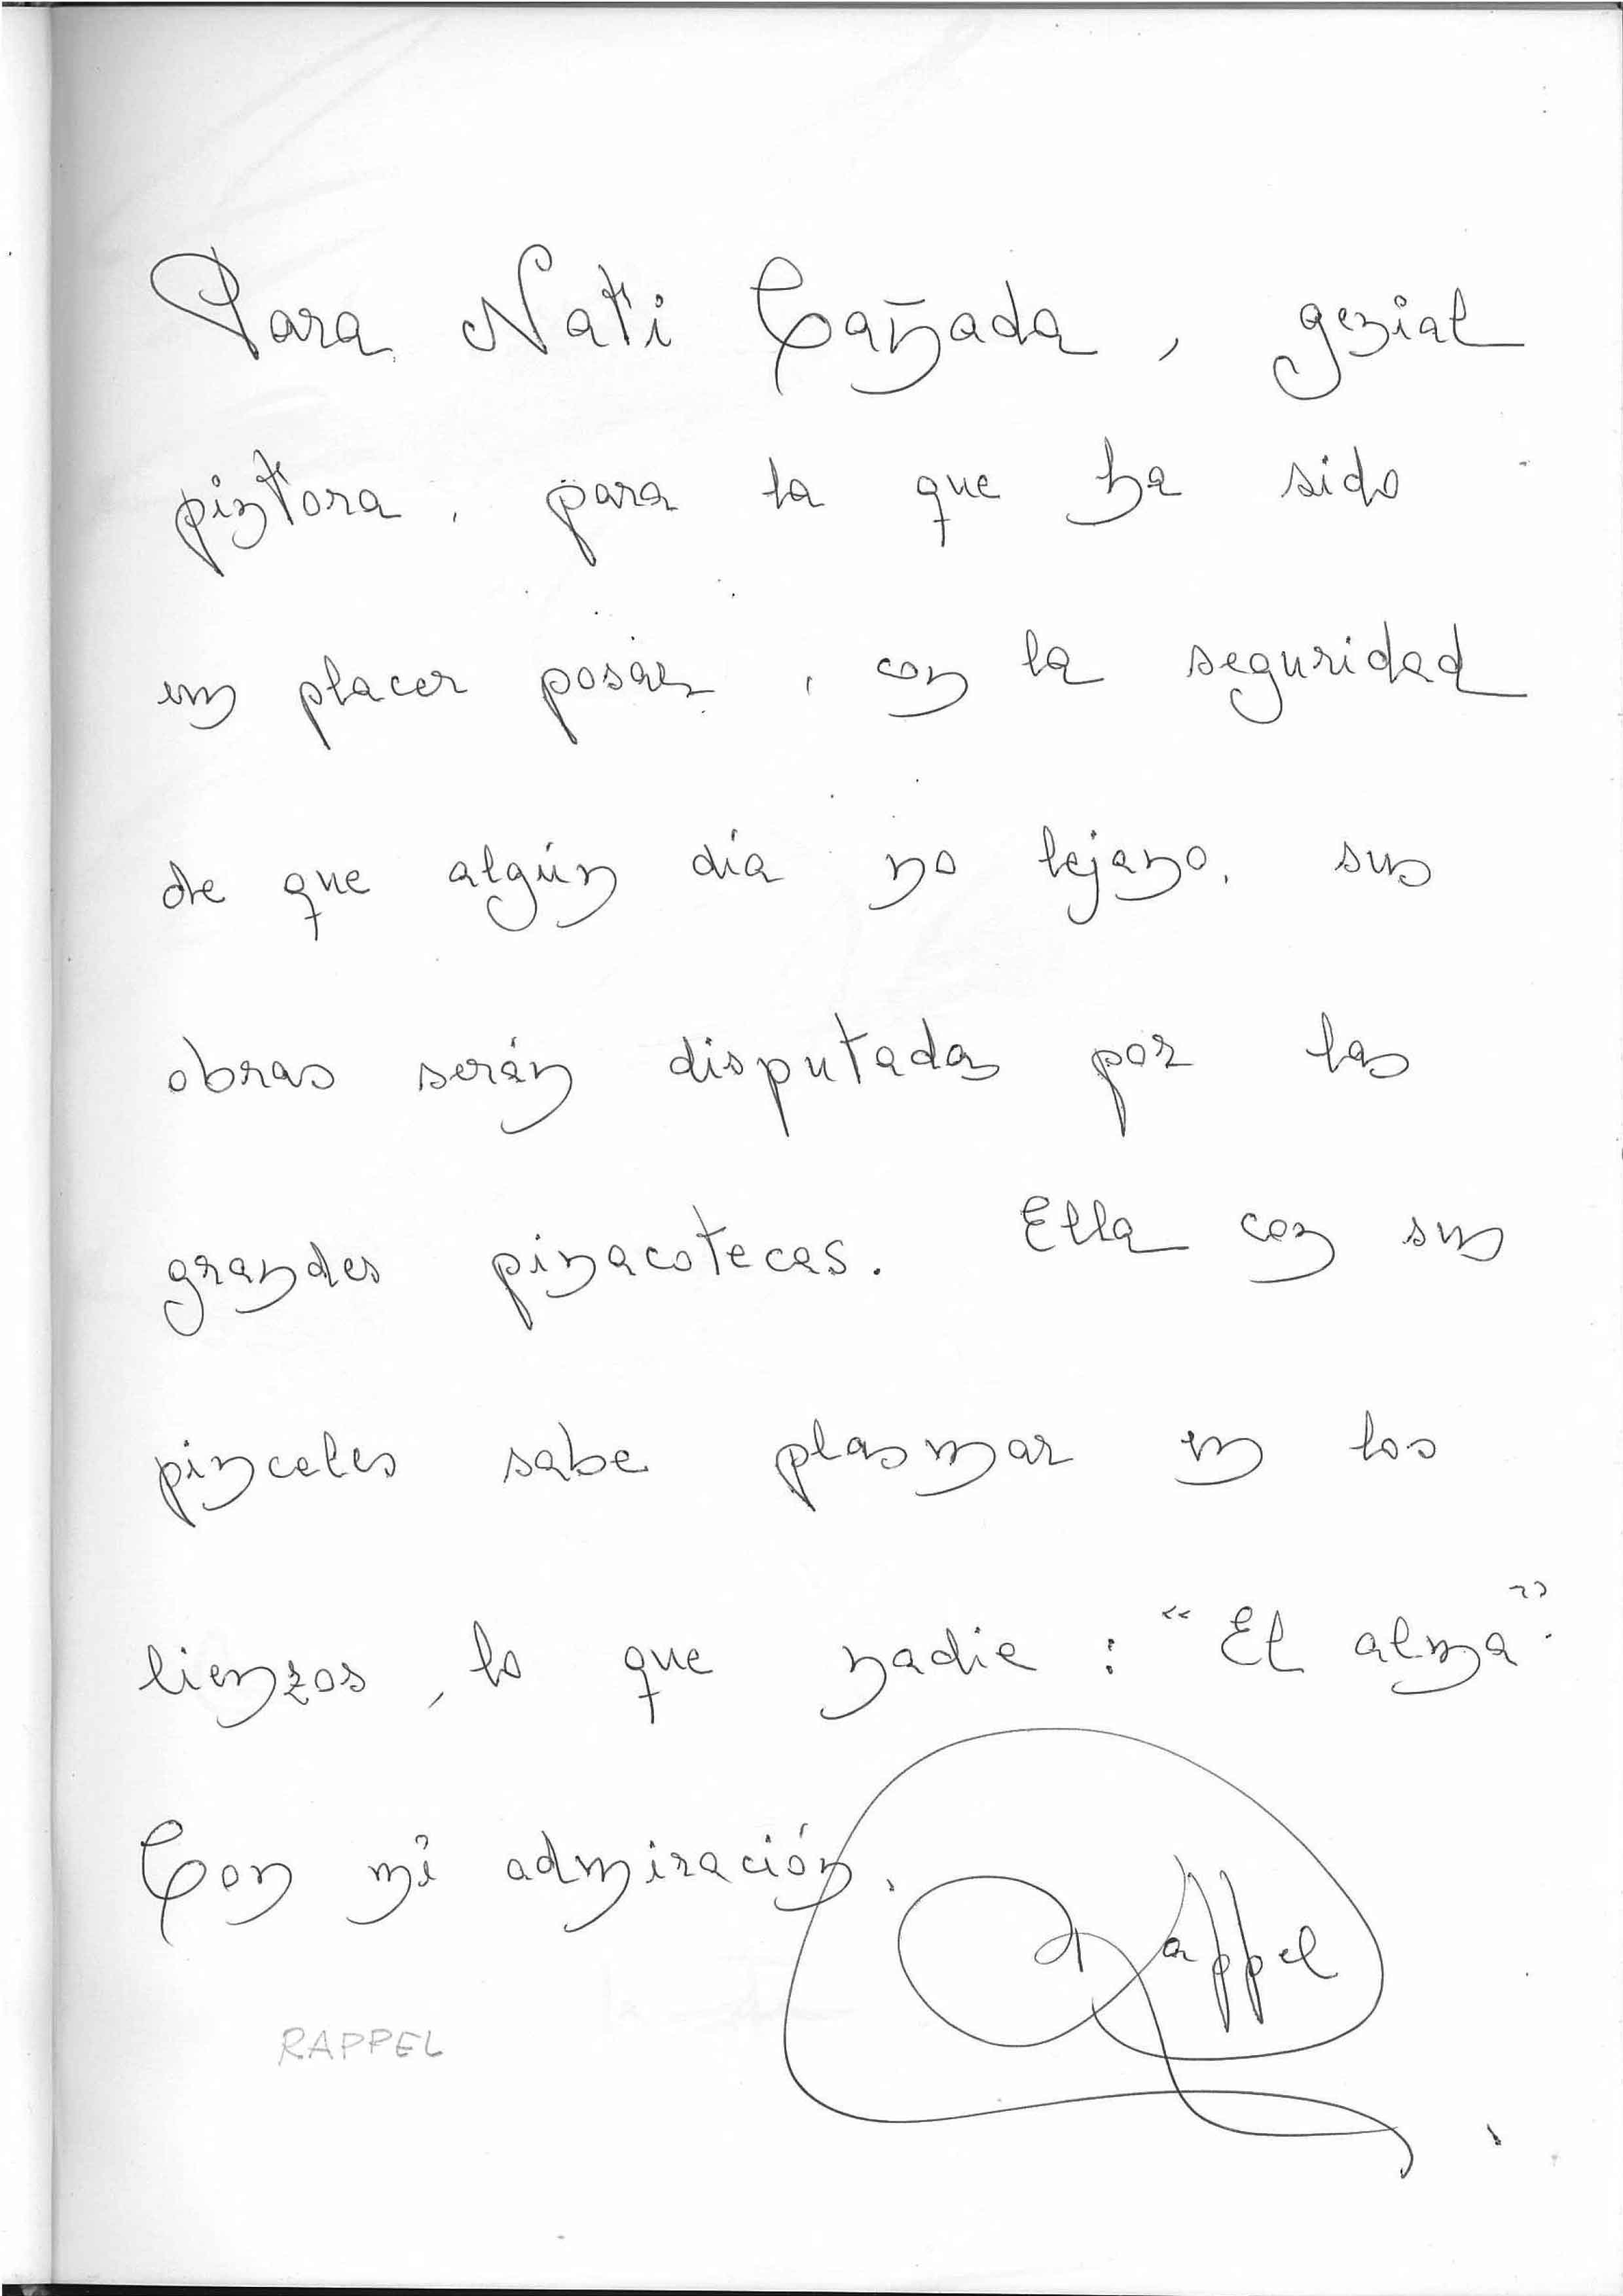 Para Nati Cañada, genial
pintora, para la que ha sido
un placer posar, con la seguridad
de que algún día no lejano, sus
obras serán disputadas por las
grandes pinacotecas. Ella con sus
pinceles sabe plasmar en los
lienzos, lo que nadie: "El alma".
Con mi admiración,
Rappel
RAPPEL